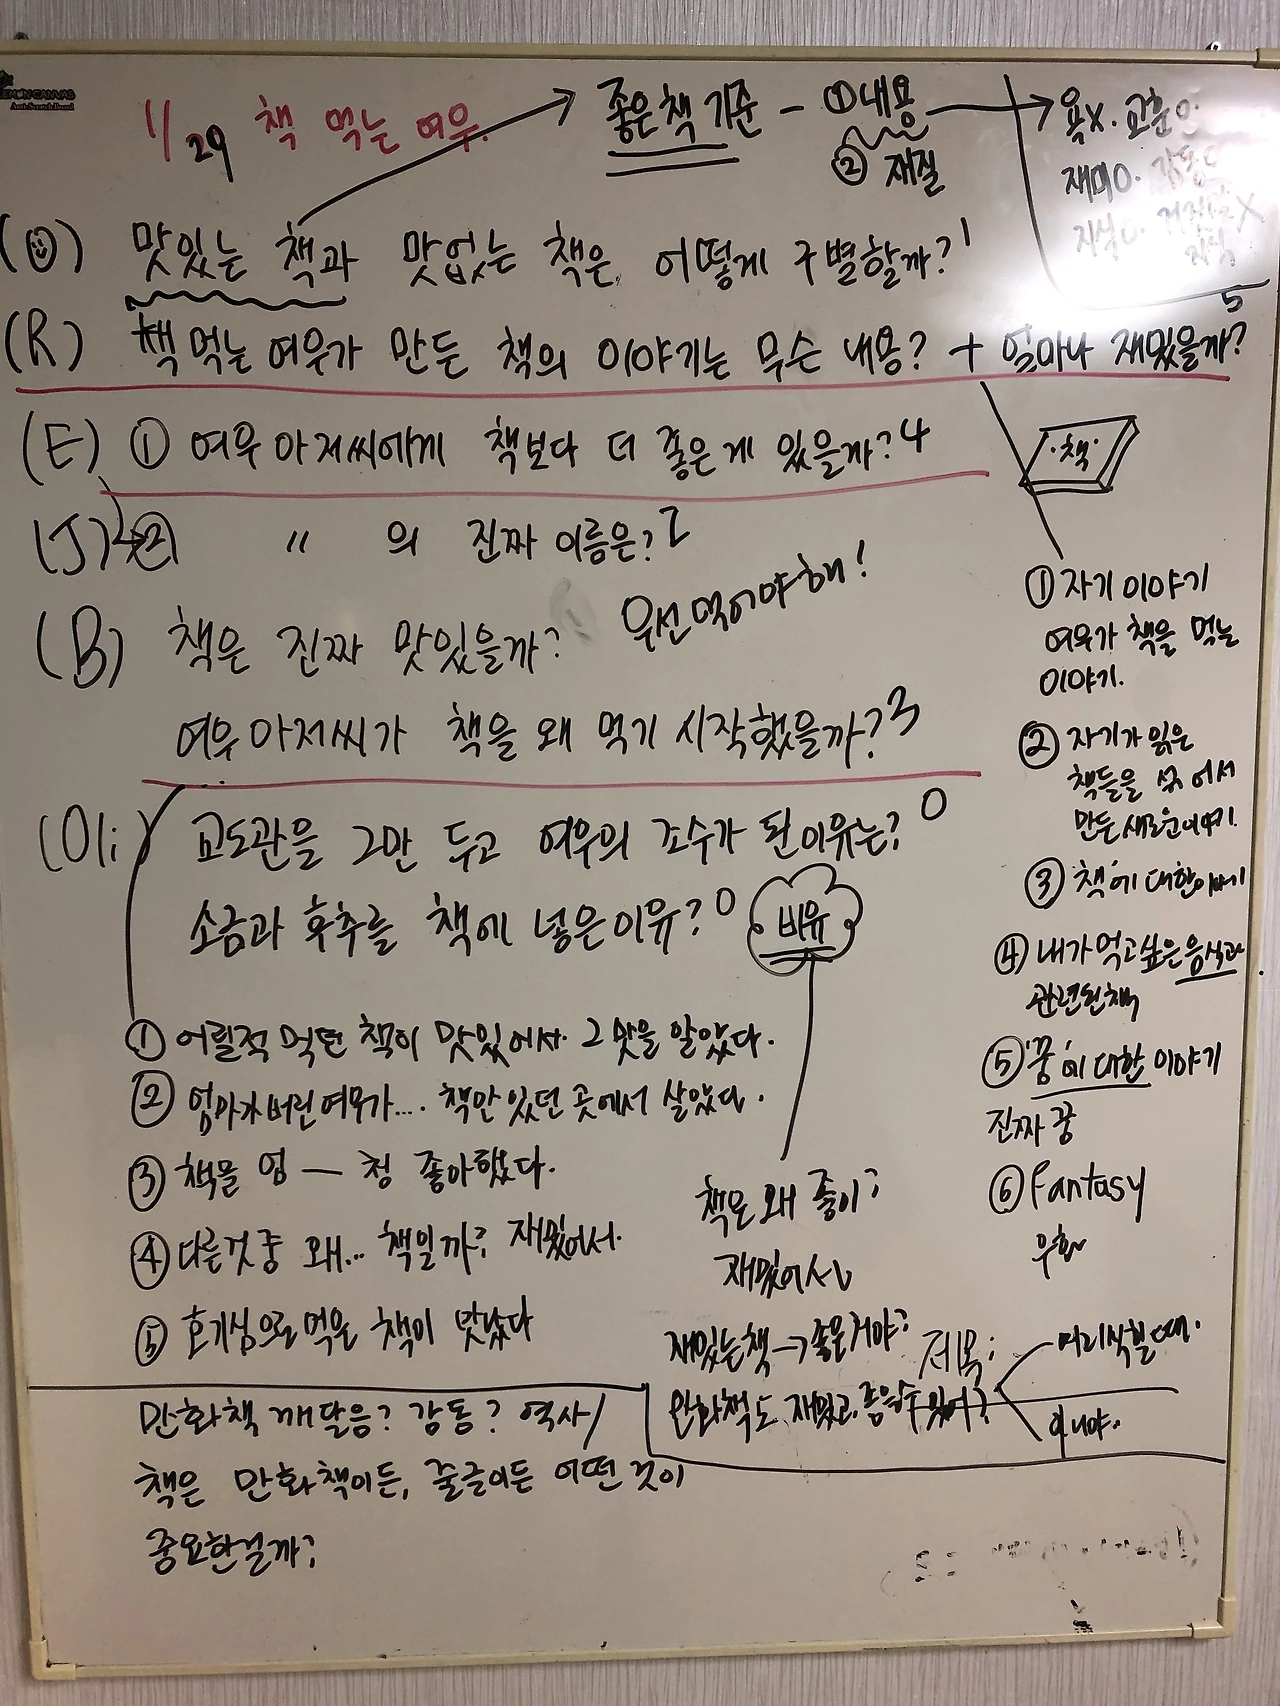 1/29 책 먹는 여우.
좋은책 기준 - ① 내용
② 재질
욕x. 교훈o.
재미o. 감동o
지식o. 거짓말 X
지식
(U) 맛있는 책과 맛없는 책은 어떻게 구별할까? 1
(R) 책 먹는 여우가 만든 책의 이야기는 무슨 내용? + 얼마나 재밌을까? 5
(E) ① 여우 아저씨에게 책보다 더 좋은 게 있을까? 4
(J) ② 〃 의 진짜 이름은? 2
(B) 책은 진짜 맛있을까? 우선 먹어야 해!
여우 아저씨가 책을 왜 먹기 시작했을까? 3
(Oli) 교도관을 그만 두고 여우의 조수가 된 이유는? 0
소금과 후추를 책에 넣은 이유? 0
비유
① 어릴적 먹던 책이 맛있어서. 그 맛을 알았다.
② 엄마가 버린 여우가.... 책만 있던 곳에서 살았다.
③ 책을 엄 — 청 좋아했다.
④ 다른것 중 왜... 책일까? 재밌어서.
⑤ 호기심으로 먹은 책이 맛났다
책은 왜 좋아?
재밌어서
재밌는책 → 좋은거야?
만화책도 재밌고 좋을수 있어?
제목:
머리식힐 때.
아니야.
·책·
① 자기 이야기
여우가 책을 먹는
이야기.
② 자기가 읽은
책들을 섞어서
만든 새로운이야기.
③ '책'에 대한이야기
④ 내가 먹고싶은 음식과
관련된책
⑤ '꿈'에 대한 이야기
진짜 꿈
⑥ Fantasy
우화
만화책 깨달음? 감동? 역사/
책은 만화책이든, 줄글이든 어떤 것이
중요한걸까?